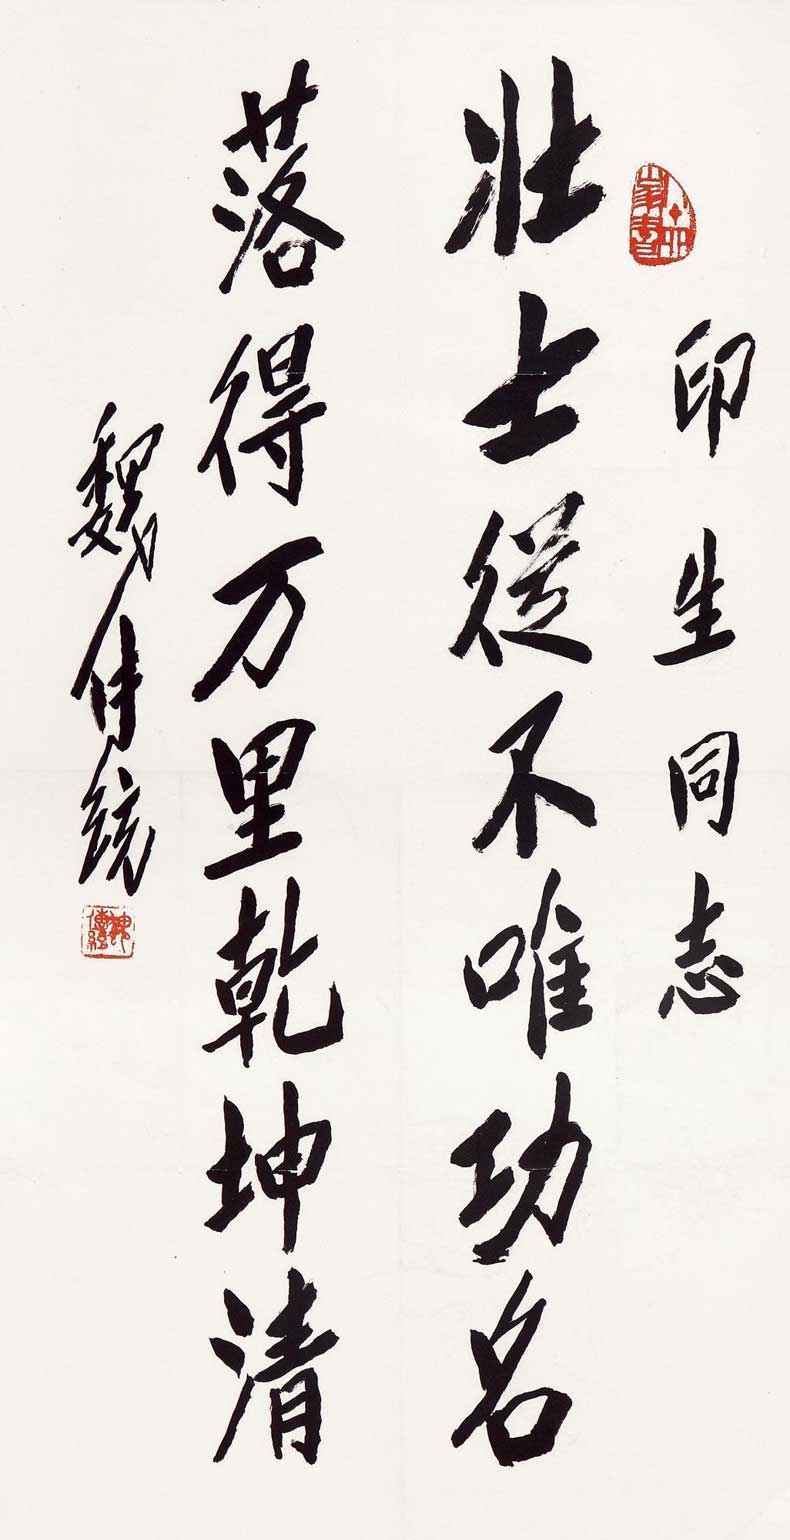 印生同志
壮士從不唯功名
落得万里乾坤清
魏傳統